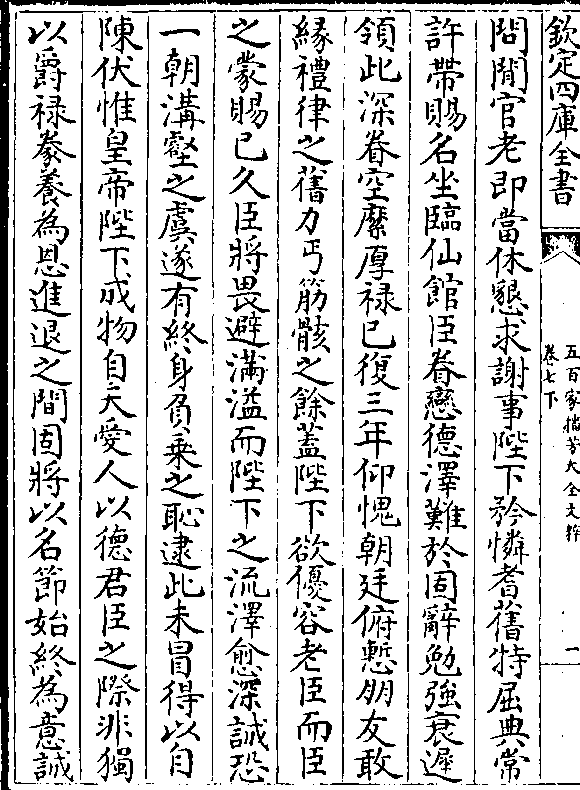 欽定四庫全書
五百家播芳大全文粹
卷七下
一
問閒官老即當休懇求謝事陛下矜憐耆舊特屈典常
許帶賜名坐臨仙館臣眷戀德澤難於固辭勉強衰遲
領此深眷空縻厚禄已復三年仰愧朝廷俯慙朋友敢
縁禮律之舊力丐筋骸之餘蓋陛下欲優容老臣而臣
之蒙賜已久臣將畏避滿溢而陛下之流澤愈深誠恐
一朝溝壑之虞遂有終身負乗之恥逮此未冒得以自
陳伏惟皇帝陛下成物自天愛人以德君臣之際非獨
以爵禄豢養為恩進退之間固將以名節始終為意誠